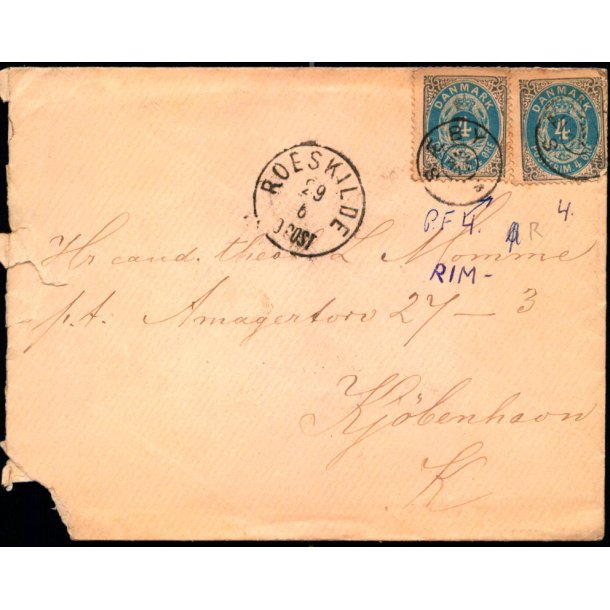 DANMARK
4
DANMARK
4
ROESKILDE
29
6
P.F 4.
4.
R
RIM-
Hr cand. theol L Momme
p.t. Amagertorv 27-3
Kjöbenhavn
K